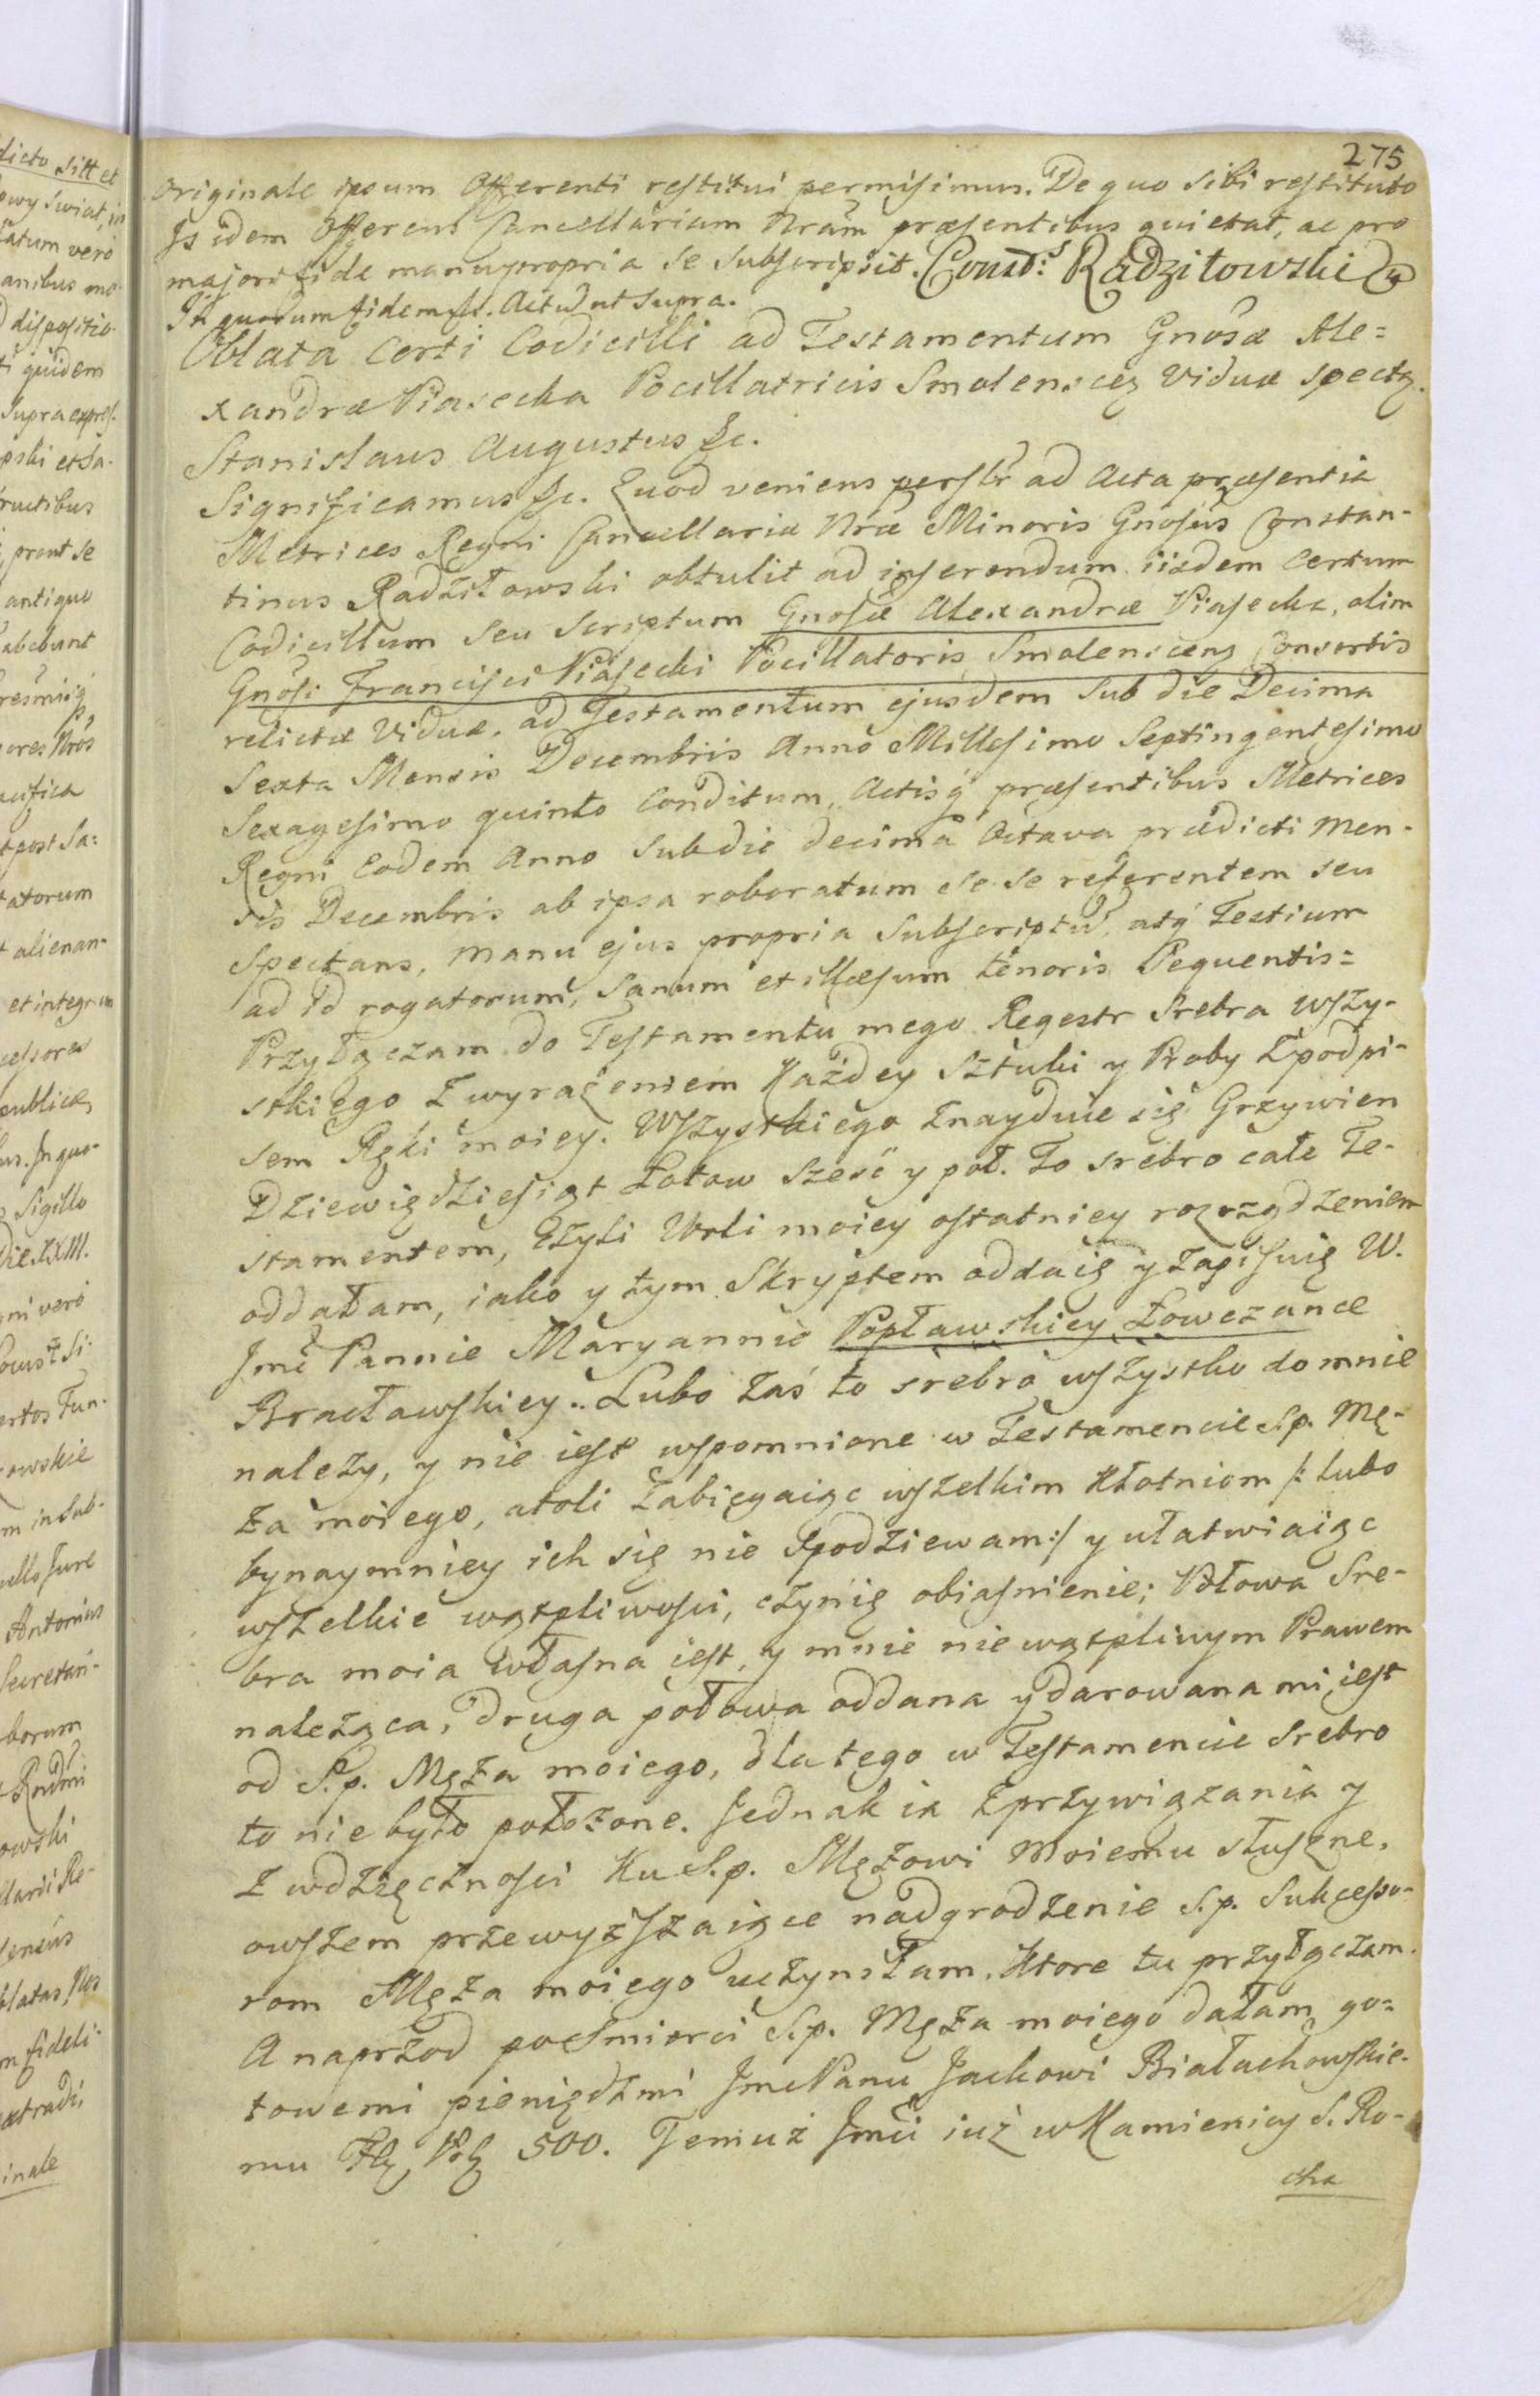 275
originale ipsum Offerenti restitui permisimus. De quo sibi restituto
Is idem Offerens Cancellariam Nram præsentibus quietat, ac pro
majori fide manu propria se subscripsit. Const:s Radziłowski
In quorum fidem &c. Actu ut supra.
Oblata Certi Codicilli ad Testamentum Gnosæ Ale=
xandræ Piasecka Pocillatricis Smolenscen Viduæ spectan.
Stanislaus Augustus &c.
Significamus &c. Quod veniens perslr ad Acta præsentia
Metrices Regni Cancellariæ Nræ Minoris Gnosus Constan-
tinus Radziłowski obtulit ad inserendum iisdem Certum
Codicillum seu scriptum Gnosæ Alexandræ Piasecka, olim
Gnosi Francisci Piasecki Pocillatoris Smolenscens Consortis
relictæ Viduæ, ad Testamentum ejusdem sub die Decima
Sexta Mensis Decembris Anno Millesimo Septingentesimo
Sexagesimo quinto Conditum, Actisq præsentibus Metrices
Regni Eodem Anno sub die decima Octava prædicti Men-
sis Decembris ab ipsa roboratum se se referentem seu
Spectans, manu ejus propria Subscriptu, atq Testium
ad Id rogatorum, Sanum et illæsum tenoris Sequentis=
Przyłączam do Testamentu mego Regestr Srebra wszy-
stkiego z wyrażeniem Każdey Sztuki y Proby z podpi-
sem Ręki moiey. Wszystkiego znayduie się Grzywien
Dziewiędziesiąt Łotow Sześć y poł. To srebro całe Te-
stamentem, czyli Woli moiey ostatniey rozrządzeniem
oddałam, iako y tym Skryptem oddaię y zapisuię W.
Jmć Pannie Maryannie Popławskiey Łowczance
Bracławskiey.. Lubo zaś to srebro wszystko do mnie
należy, y nie iest wspomnione w Testamencie S.p. Mę-
ża moiego, atoli zabiegaiąc wszelkim Kłotniom /: lubo
bynaymniey ich się nie spodziewam :/ y ułatwiaiąc
wszelkie wątpliwości, czynię obiaśnienie; Połowa Sre-
bra moia własna iest, y mnie niewątpliwym Prawem
należąca, druga połowa oddana y darowana mi iest
od S.p. Męża moiego, dla tego w Testamencie Srebro
to nie było położone. Jednak ia z przywiązania y
z wdzięczności Ku S.p. Mężowi Moiemu słuszne,
owszem przewyższaiące nadgrodzenie S.p. Sukcesso-
rom Męża moiego uczyniłam. Ktore tu przyłączam.
A naprzod po Smierci S.p. Męża moiego dałam go=
towemi pieniędzmi Jmć Panu Jackowi Białachowskie-
mu Zł Pol 500. Temuż Jmci iuż w Kamienicy S. Ro-
cha